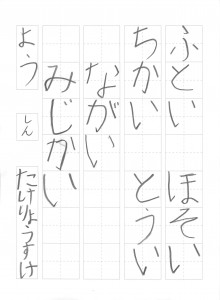 ふとい ほそい
ちかい とうい
ながい
みじかい
よう しん たけりょうすけ